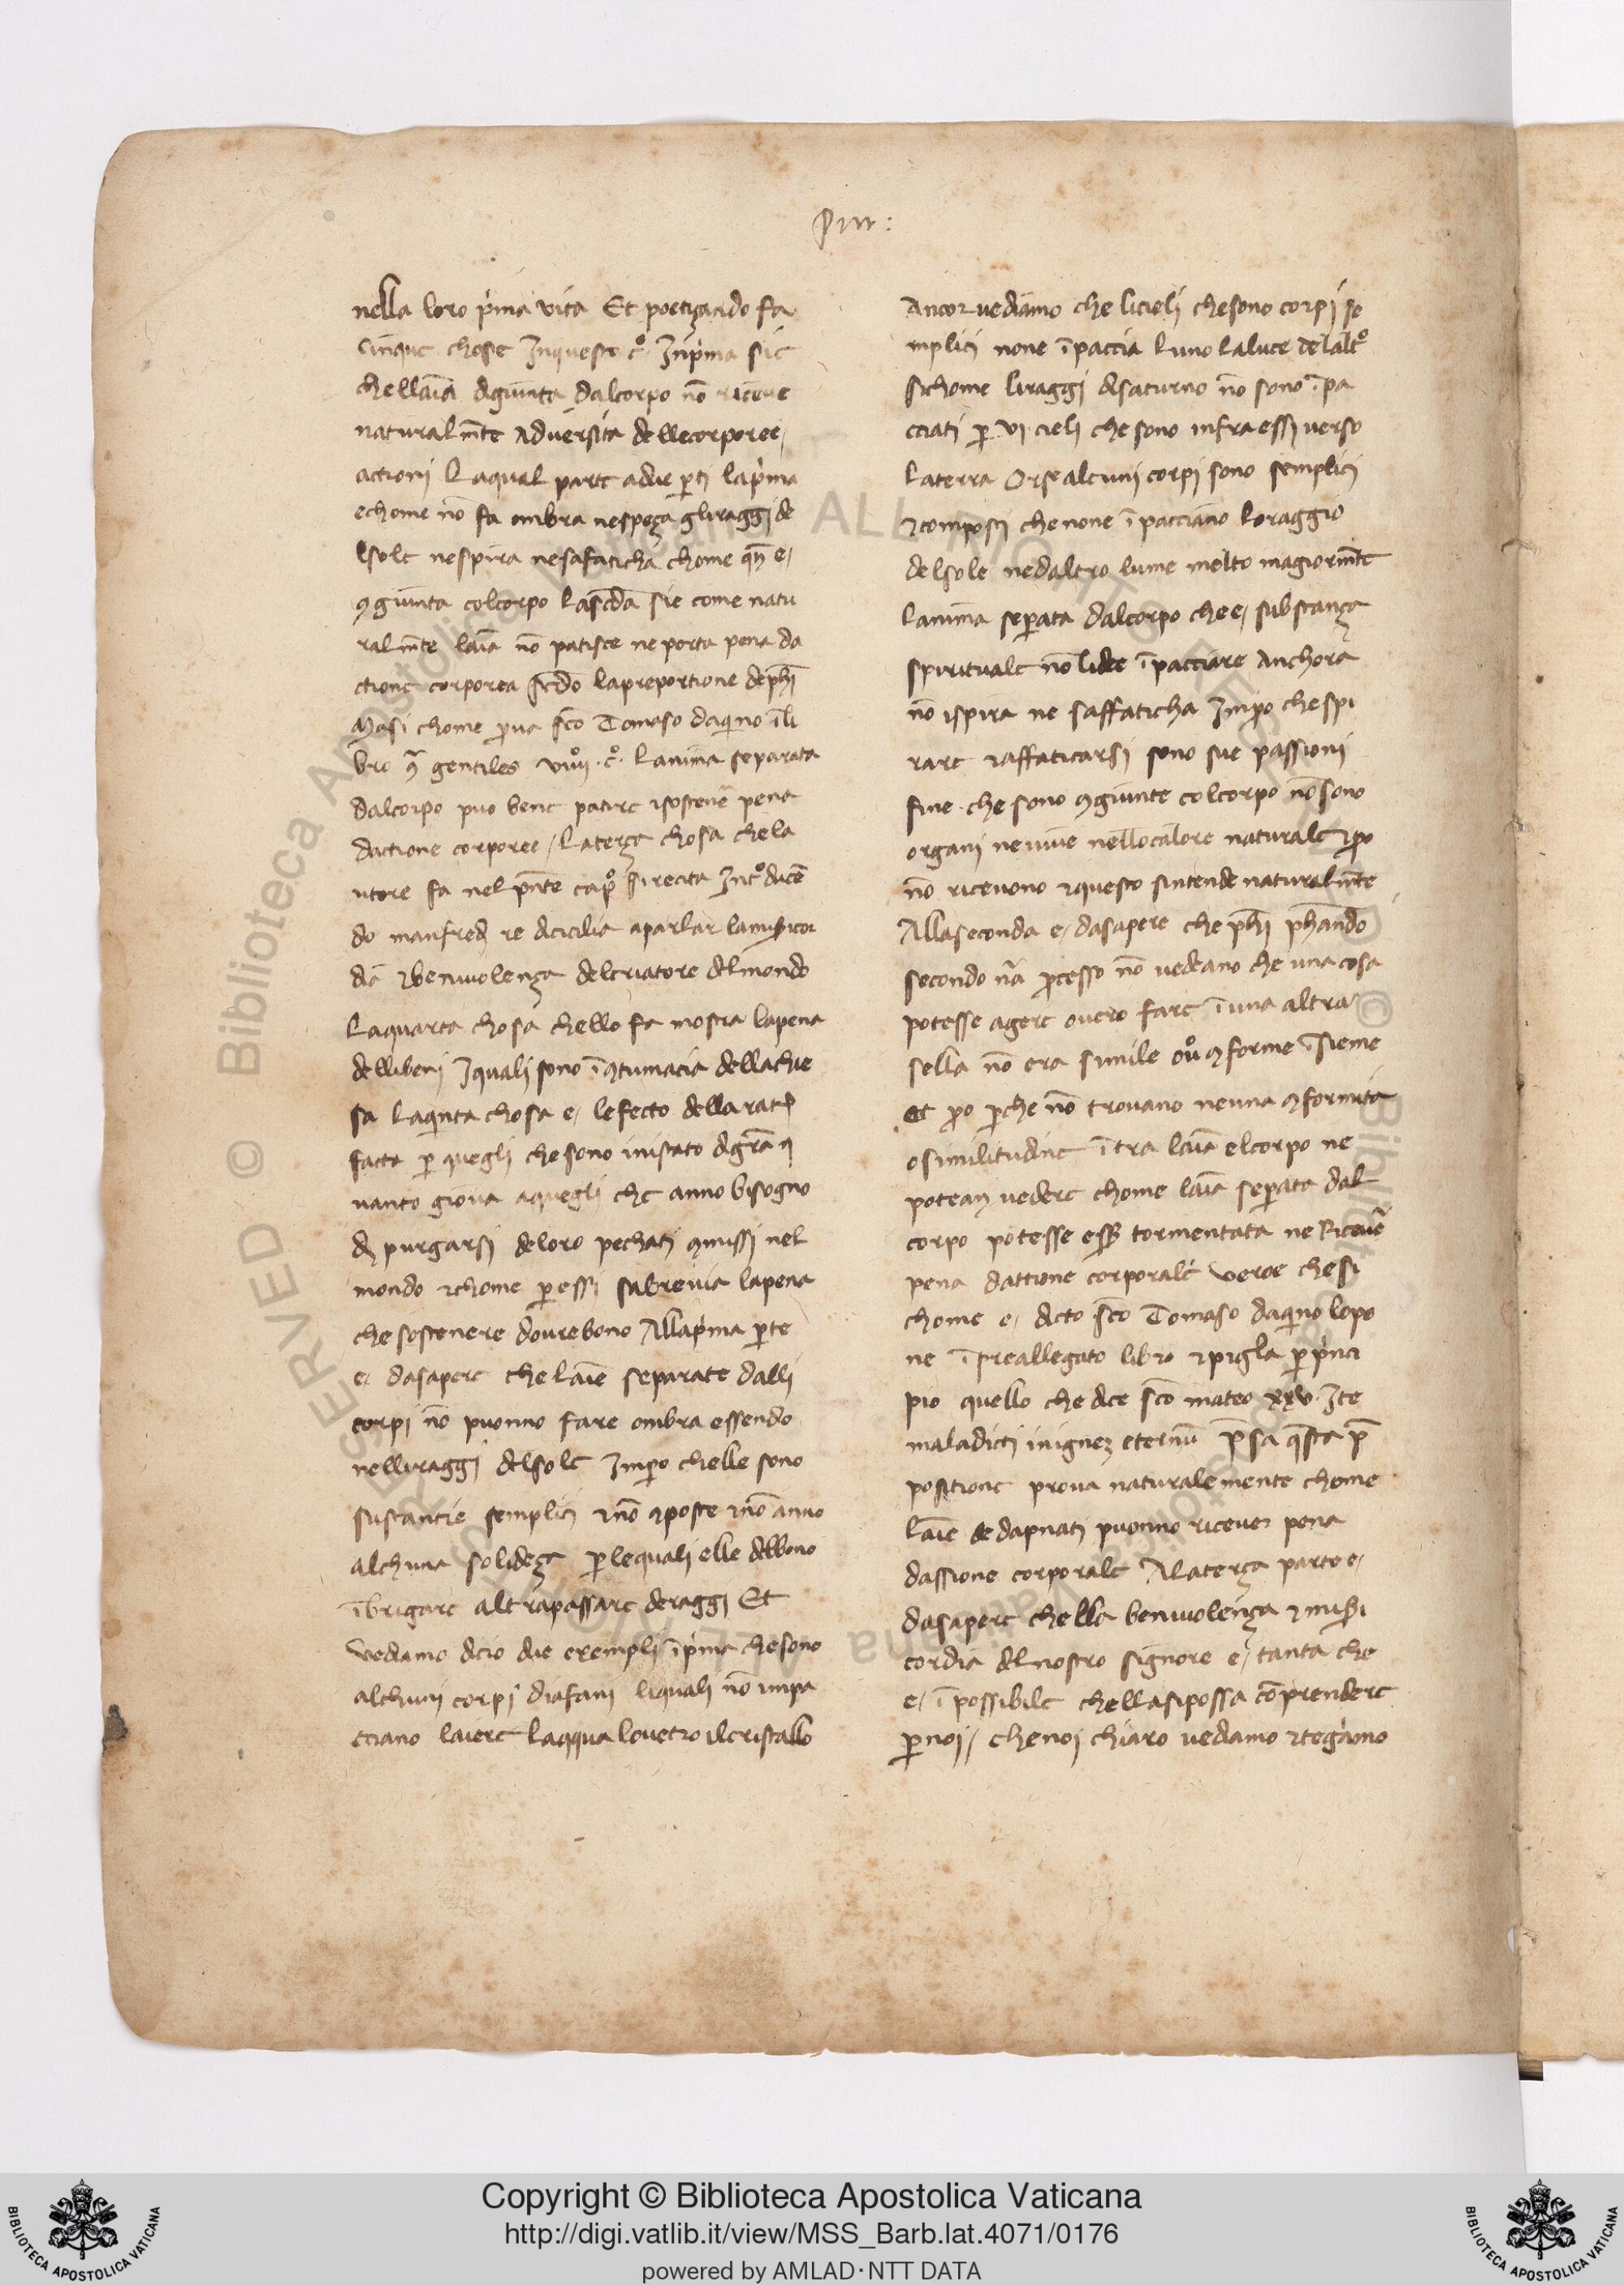 pur:
nella loro p'ima vita Et poetiçando fa
cinque chose Inquesto c°. Inp'ima sie
chellaīa dgiunta dalcorpo nō riceve
naturalmēte adversita dellecorporee,
actioni Laqual parte adue pti lap'ima
echome nō fa ombra nespeça gliraggi de
lsole nespira nesafaticha chome qn̄ e,
ꝯgiunta colcorpo Lascda sie come natu
ralmēte laīa nō patisce ne porta pena da
ctione corporea scdo laproportione dephī
Masi chome pua sco Tomaso daqino ī li
bro gentiles Lanima separata
dalcorpo puo bene patire ⁊sostene pena
dactione corporee, Laterça chosa chela
utore fa nel pn̄te cap° si recita Int°ducē
do manfredi re dicicilia aparlar lamisicor
dia ⁊benivolença delcriatore delmondo
Laquarta chosa chello fa mostra lapena
delliberi Iquali sono īꝯtumacia dellachie
sa Laqinta chosa e, lefecto della
facta p quegli chesono inistato digrā q
uanto giova aquegli che anno bisogno
di purgarsi deloro pechati ꝯmissi nel
mondo ⁊chome p essi sabrevia lapena
che sostenere dourebono Allap'ima pte
e, dasapere che laīe separate dalli
corpi nō puonno fare ombra essendo
nelliraggi delsole Impo chelle sono
sustantie semplici ⁊nō ꝯposte ⁊nō anno
alchuna solideça p lequali elle debbono
ībrigare altrapassare deraggi Et
vediamo dicio due exempli īp'ima chesono
alchuni corpi diafani liquali nō impa
cciano laiere laqqua lovetro ilcristallo
Ancor vediamo che licieli chesono corpi se
mplici none īpaccia luno laluce delalt°
sichome liraggi disaturno nō sono īpa
cciati p vi cieli che sono infra essi verso
laterra Orse alcuni corpi sono semplici
⁊composti chenone īpacciano loraggio
delsole nedaltro lume molto magiormēte
lanima sepata dalcorpo che e, substança
spirituale nō lidee īpacciare Anchora
nō ispira ne saffaticha Impo chespi
rare ⁊affaticarsi sono sue passioni
fine che sono ꝯgiunte colcorpo nō sono
organi ne vive nellocalore naturale ⁊po
nō ricevono ⁊questo sintende naturalmēte
Allaseconda e, dasapere che phī phando
secondo nā pcesso nō vedeano che una cosa
potesse agere overo fare ī una altra
sella nō era simile ov° ꝯforme īsieme
et po pche nō trovano neuna ꝯformita
osimilitudine ītra laīa elcorpo ne
potean vedere chome laīa sepata dal
corpo potesse ess tormentata ne Riceve
pena dattione corporale Veroe chesi
chome e, dicto sco Tomaso daqino lopo
ne ī preallegato libro ⁊pigla p p'inci
pio quello che dice sco mateo xxv. Ite
maladicti inignez eternū psa qsta p
positione prova naturalemente chome
laīe de dapnati puonno ricever pena
dassione corporale Alaterça parte e,
dasapere chella benivolença ⁊misi
cordia delnostro signore e, tanta che
e, īpossibile chellasipossa cōprendere
p noi, chenoi chiaro vediamo ⁊tegamo
Copyright © Biblioteca Apostolica Vaticana
http://digi.vatlib.it/view/MSS_Barb.lat.4071/0176
powered by AMLAD·NTT DATA